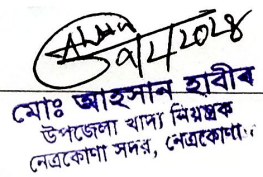 মোঃ আহসান হাবীব
উপজেলা খাদ্য নিয়ন্ত্রক
নেত্রকোণা সদর, নেত্রকোণা।